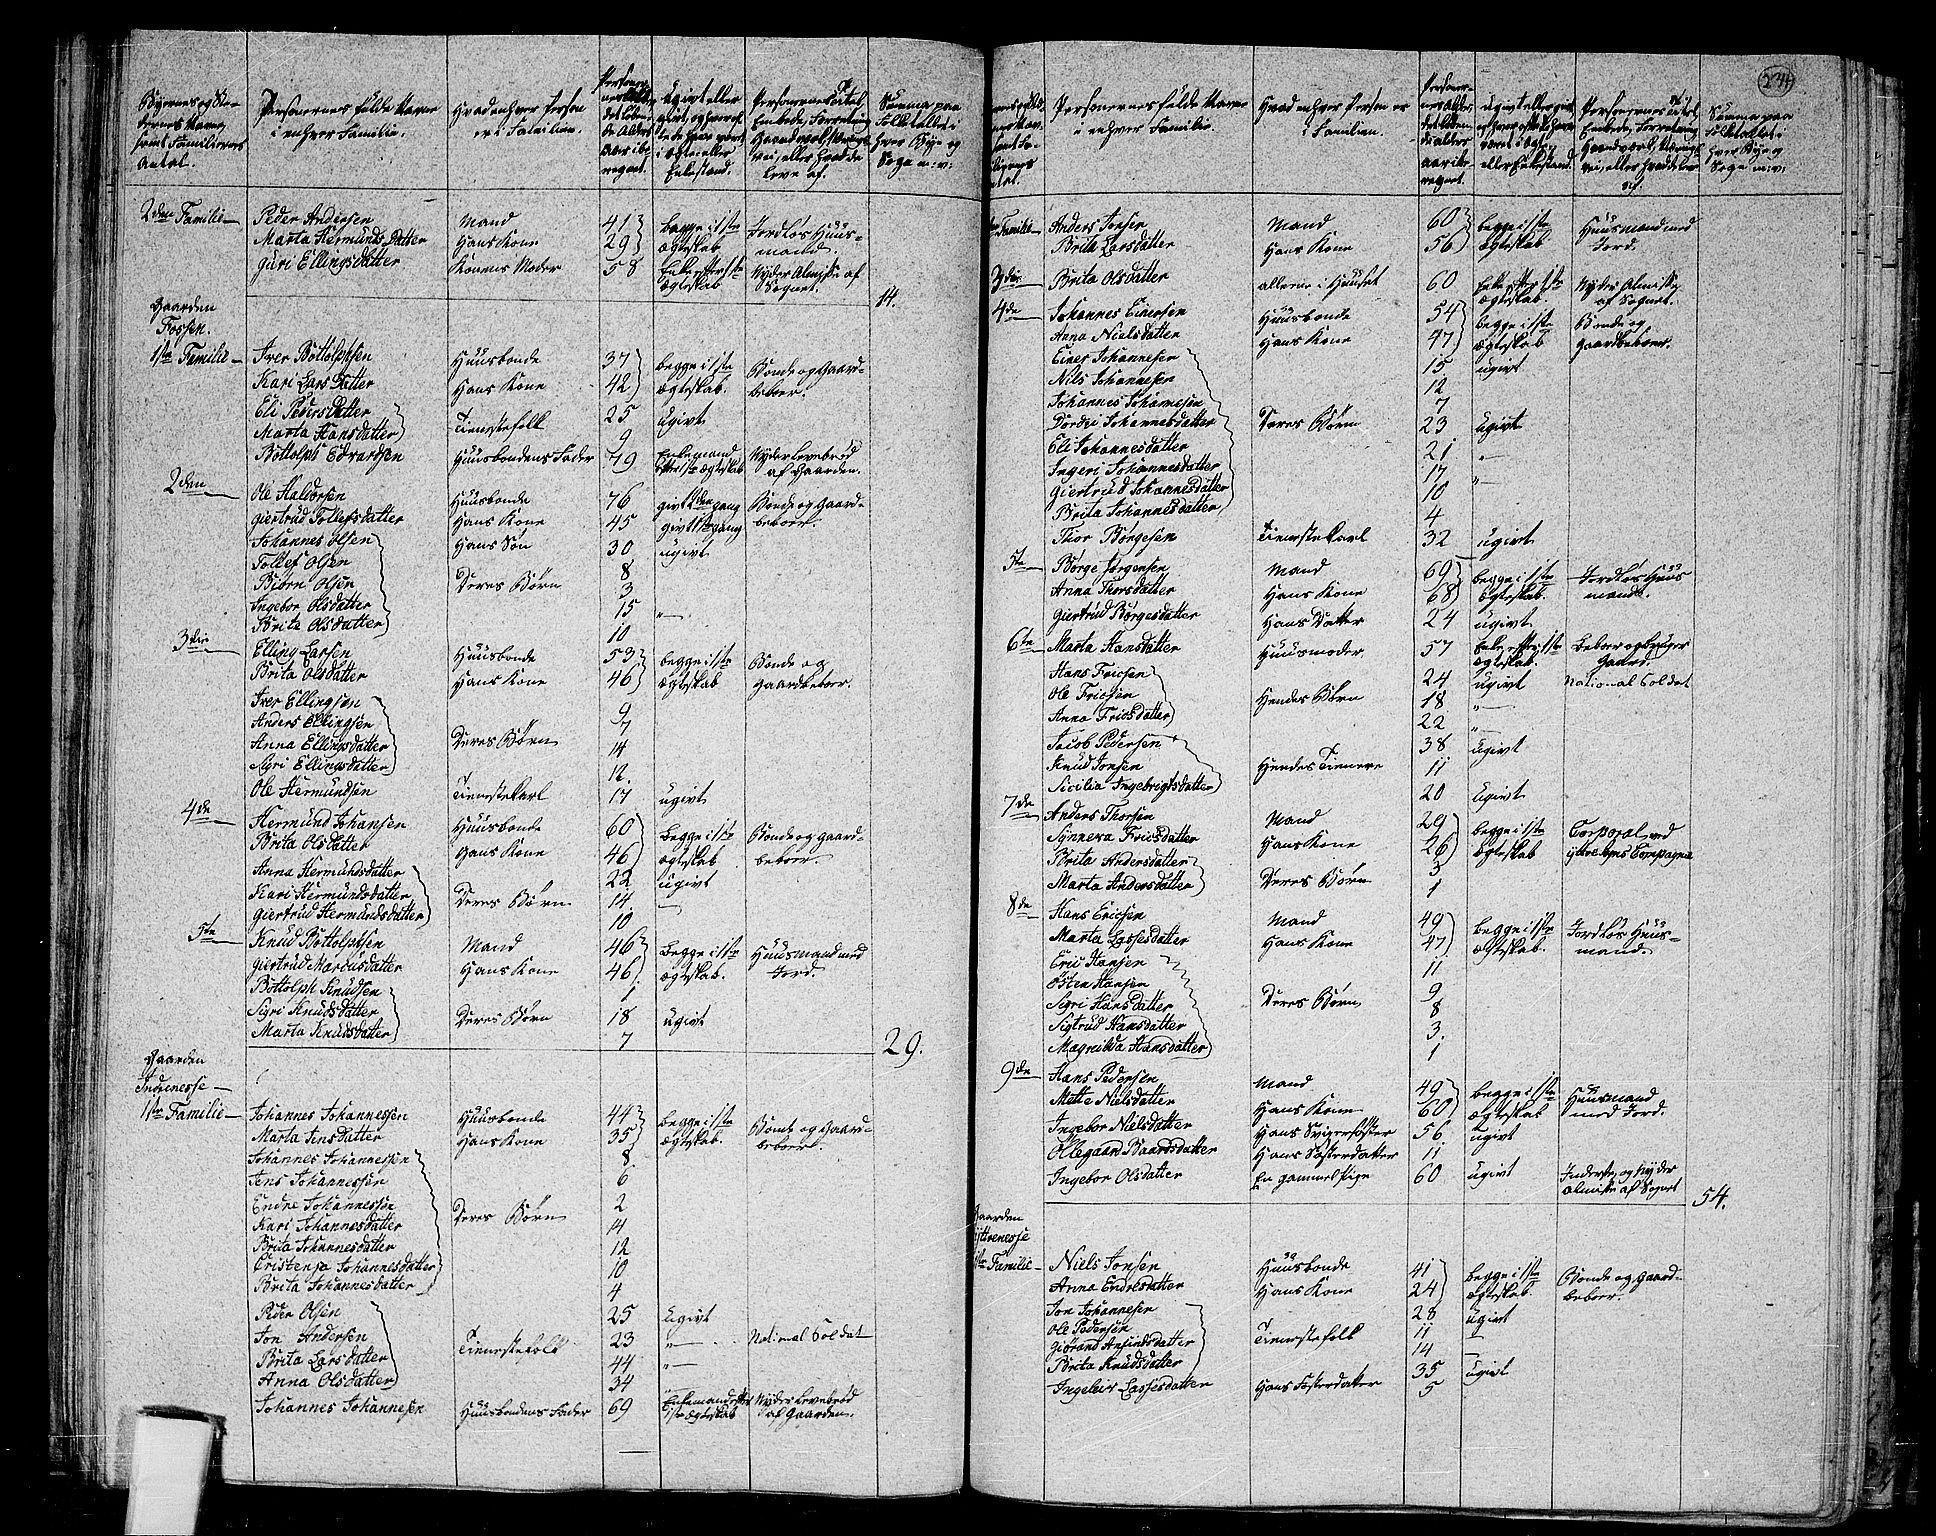 Personernes fulde Navne i enhver Familie.
Hvad enhver Person er i Familien.
2den Familie
Peder Andersen Mand 41 begge i 1ste Jordløs Huus-
Marta Hermunds Datter Hans Kone 29 Ægteskab mand
Guri Ellingsdatter Konens Moder 58 Enke efter 1ste Ægteskab Nyder Almisse af Sognet.
14.
Gaarden Fossen.
1ste Familie
Iver Bottolphsen Huusbonde 37 begge i 1ste Bonde og Gaard-
Kari Lars Datter Hans Kone 42 Ægteskab. beboer.
Eli Pedersdatter 25 ugivt
Marta Hansdatter Tienestefolk 9
Bottolph Edvardsen Huusbondens Fader 79 Enkemand efter 1ste Ægteskab Nyder Levebrød af Gaarden.
2den
Ole Haldorsen Huusbonde 76 givt 2den gang Bonde og Gaard-
Giertrud Tollefsdatter Hans Kone 45 givt 1ste gang beboer.
Johannes Olsen Hans Søn 30 ugivt
Tollef Olsen 8
Biørn Olsen Deres Børn 3
Ingebor Olsdatter 15 "
Brite Olsdatter 10
3die
Elling Larsen Huusbonde 53 begge i 1ste Bonde og
Brita Olsdatter Hans Kone 46 Ægteskab Gaardbeboer.
Iver Ellingsen 9
Anders Ellingsen 7
Anna Ellingsdatter Deres Børn 14
Sigri Ellingsdatter 12
Ole Hermundsen Tienestekarl 17 ugivt
4de
Hermund Johansen Huusbonde 60 begge i 1ste Bonde og Gaard-
Brita Olsdatter Hans Kone 46 Ægteskab beboer.
Anna Hermundsdatter 22 ugivt
Kari Hermundsdatter Deres Børn 14
Giertrud Hermundsdatter 10
5te
Knud Bottolphsen Mand 46 begge i 1ste Huusmand med
Giertrud Marcusdatter Hans Kone 46 Ægteskab. Jord.
Bottolph Knudsen 1
Sigri Knudsdatter Deres Børn 18 ugivt
Marta Knudsdatter 7
29.
Gaarden Indrenesse
1ste Familie
Johannes Johannessen Huusbonde 44 begge i 1ste Bonde og Gaard-
Marta Jensdatter Hans Kone 35 Ægteskab. beboer.
Johannes Johannessen 8
Jens Johannessen 6
Endre Johannessen 2
Kari Johannesdatter Deres Børn 14
Brita Johannesdatter 12
Cristense Johannesdatter 10
Brita Johannesdatter 4
Peder Olsen 25 ugivt
Jon Andersen Tienestefolk 23 " National Soldat
Brita Larsdatter 44 "
Anna Olsdatter 34
Johannes Johannesen Huusbondens Fader 69 Enkemand efter 1ste Ægteskab Nyder Levebrød af Gaarden.
274
Personernes fulde Navne i enhver Familie.
Hvad enhver Person er i Familien.
Familie
Anders Jonsen Mand 60 begge i 1ste Huusmand med
Brita Larsdatter Hans Kone 56 Ægteskab Jord.
3die
Brita Olsdatter allene i Huuset 60 Enke efter 1ste Ægteskab. Nyder Almisse af Sognet.
4de
Johannes Einersen Huusbonde 54 begge i 1ste Bonde og
Anna Nielsdatter Hans Kone 47 Ægteskab Gaardbeboer.
Einer Johannesen 15 ugivt
Nils Johannesen 12
Johannes Johannesen 7
Dordei Johannesdatter Deres Børn 23 ugivt
Eli Johannesdatter 21 "
Ingeri Johannesdatter 17 "
Giertrud Johannesdatter 10
Brita Johannesdatter 4
Thor Børgesen Tienestekarl 32 ugivt
5te
Børge Jørgensen Mand 69 begge i 1ste Jordløs Huus
Anna Thorsdatter Hans Kone 68 Ægteskab. mand.
Giertrud Børgesdatter Hans Datter 24 ugivt
6te
Marta Hansdatter Huusmoder 57 Enke efter 1ste Ægteskab. Beboer og bruger Gaard.
Hans Fricsen 24 ugivt National Soldat
Ole Fricsen Hendes Børn 18 "
Anna Fricsdatter 22 "
Jacob Pedersen 38 ugivt
Knud Jonsen Hendes Tienere 11
Sicilia Ingebrigtsdatter 20 ugivt
7de
Anders Thorsen Mand 29 begge i 1ste Corporal ved
Synneva Fricsdatter Hans Kone 26 Ægteskab Compagnie
Brita Andersdatter 3
Marta Andersdatter Deres Børn 1
8de
Hans Ericsen Mand 49 begge i 1ste Jordløs Huus-
Marta Lassesdatter Hans Kone 47 Ægteskab. mand.
Eric Hansen 11
Østen Hansen 9
Sigri Hansdatter Deres Børn 8
Sigtrud Hansdatter 3.
Magnilda Hansdatter 1
9de
Hans Pedersen Mand 49 begge i 1ste Huusmand
Mette Nielsdatter Hans Kone 60 Ægteskab med Jord.
Ingebor Nielsdatter Hans Svigersøster 56. ugivt
Ollegaard Baardsdatter Hans Søsterdatter 11
Ingebor Olsdatter En gammel Pige 60 ugivt Inderste og nyder Almisse af Sognet
54.
Gaarden Yttrenesse
1ste Familie
Niels Jonsen Huusbonde 41 begge i 1ste Bonde og Gaard-
Anna Endresdatter Hans Kone 24 Ægteskab. beboer.
Jon Johannesen 28 ugivt
Ole Pedersen 11
Giørand Amundsdatter Tienestefolk 14
Brita Knudsdatter 35 ugivt
Ingeleir Lassesdatter Hans Fosterdatter 5